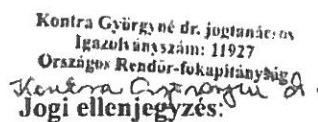 Kontra Györgyné dr. jogtanácsos
Igazolványszám: 11927
Országos Rendőr-főkapitányság
Kontra Györgyné dr.
Jogi ellenjegyzés: